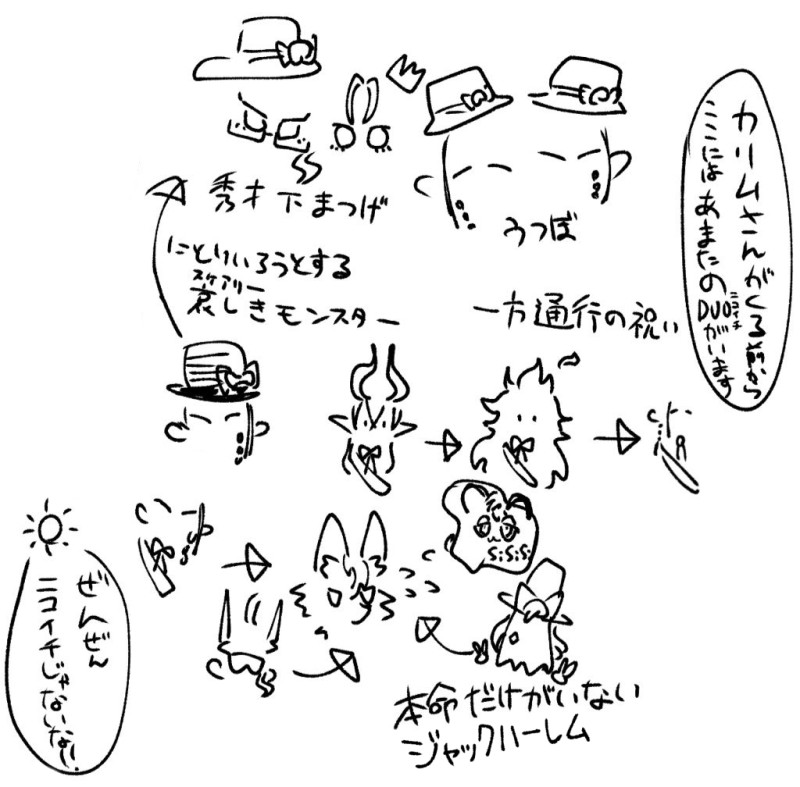 カリムさんがくる前から
ここには あまたの DUOがいます
ニコイチ
秀才下まつげ
うつぼ
にとしいろうとする
スケアリー
哀しきモンスター
一方通行の祝い
SiSiSi
ぜんぜん
ニコイチじゃないな!
本命だけがいない
ジャックハーレム